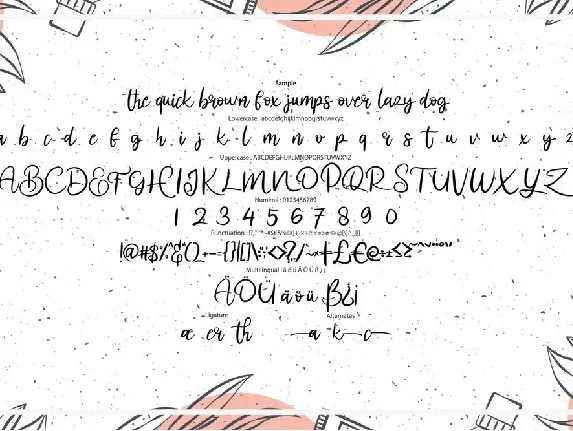 Sample
the quick brown fox jumps over lazy dog
Lowercase : abcdefghijklmnopqrstuvwxyz
a b c d e f g h i j k l m n o p q r s t u v w x y z
Uppercase : ABCDEFGHIJKLMNOPQRSTUVWXYZ
ABCDEFGHIJKLMNOPQRSTUVWXYZ
Numirul : 0123456789
1 2 3 4 5 6 7 8 9 0
Punctuation :
Multilingual : ä ö ü Ä Ö Ü ß ¿ ¡
ÄÖÜ ä ö ü ß¿¡
Ligature Alternates
æ er th a k c